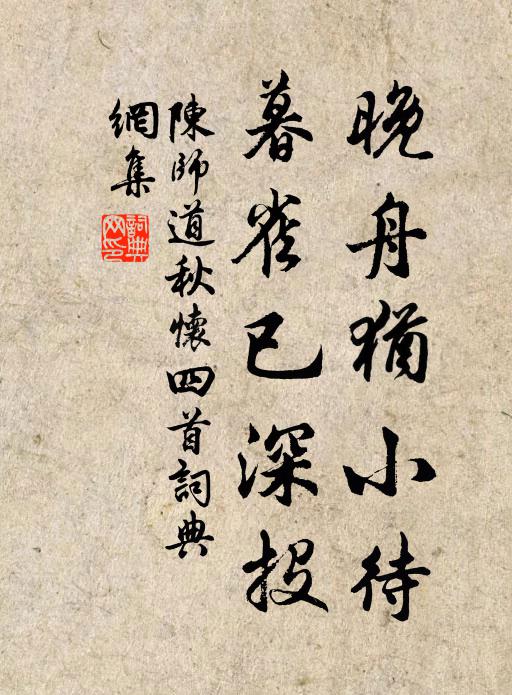 晚舟猶小待
暮雀已深投
陳師道秋懷四首詞典
網集
詞典網印